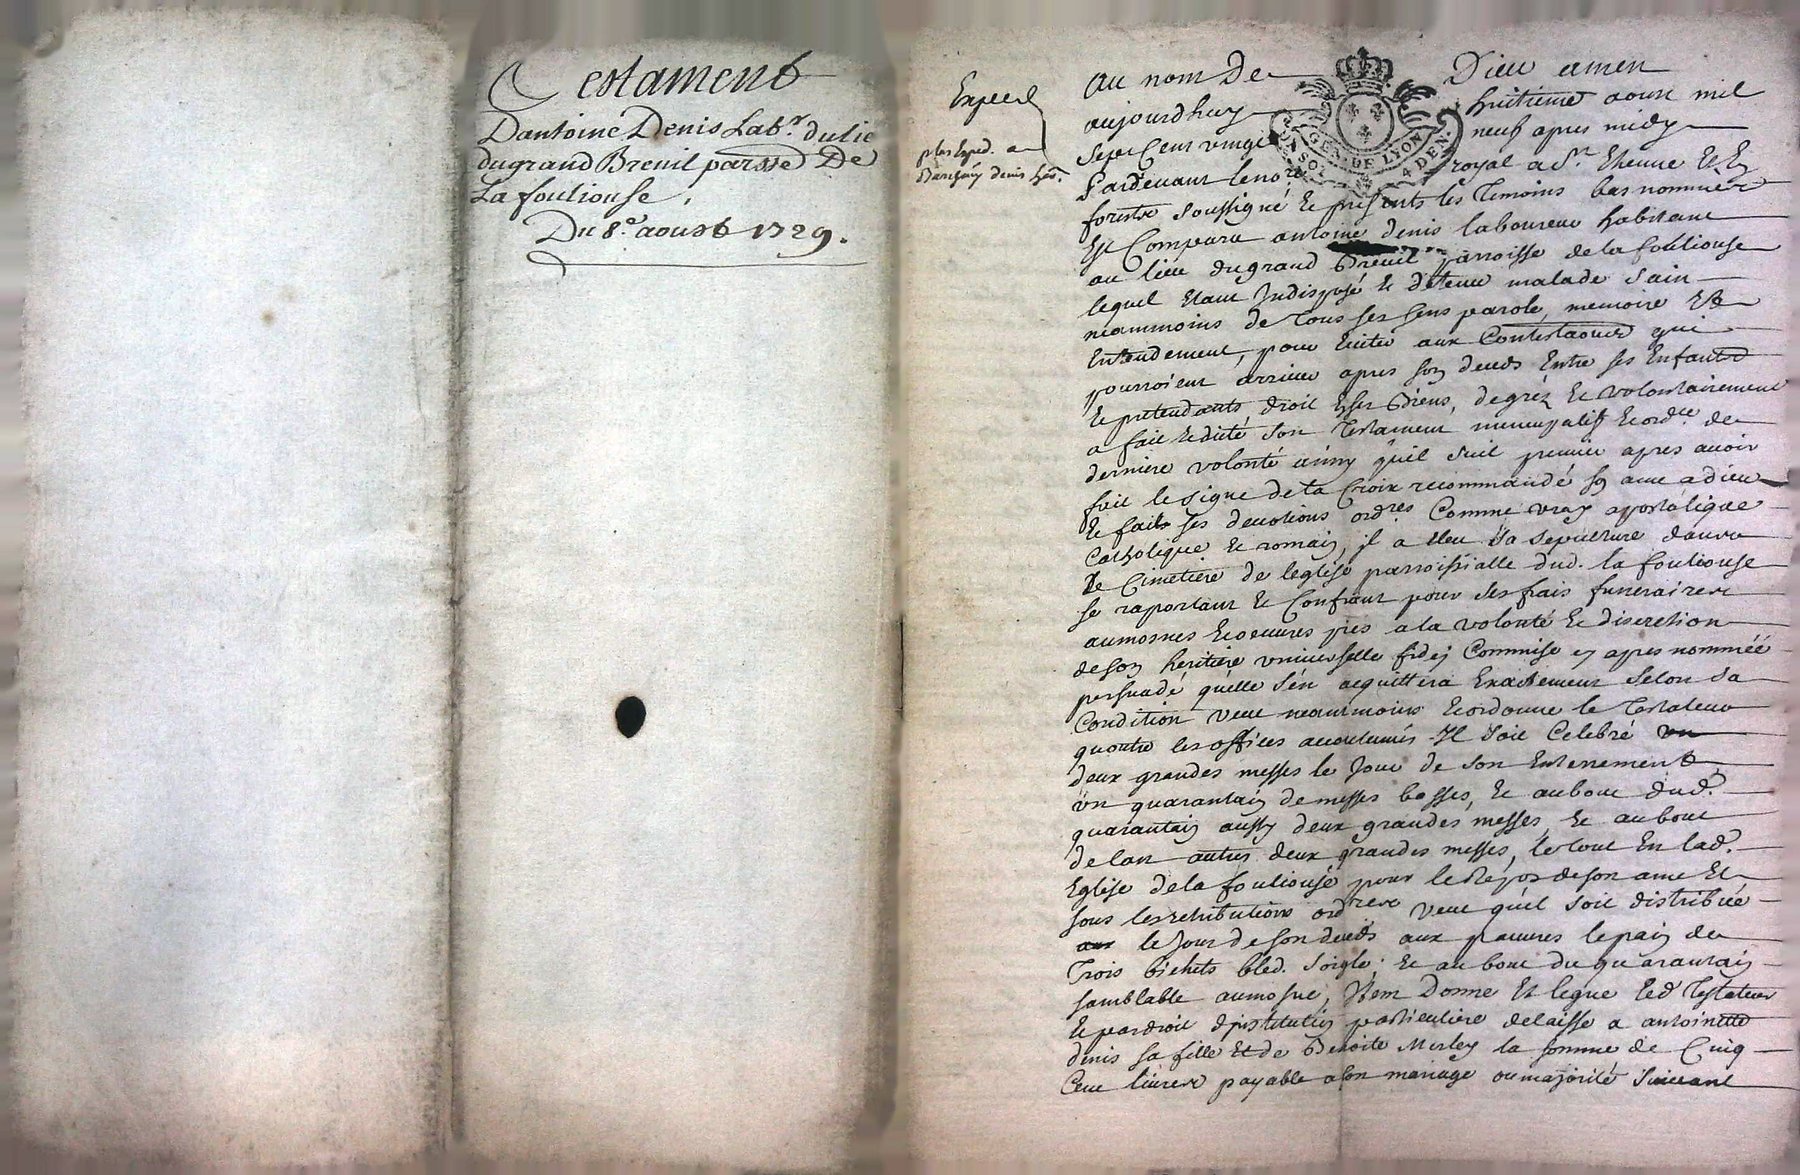 Testament
Dantoine Denis Lab.r du lieu
du grand Breuil parsse De
La fouliouse,
Du 8.e aoust 1729.
Expedé
plus Exped. a
Barthmy denis her.
Au nom De Dieu amen
aujourdhuy huitieme aoust mil
sept Cent vingt neuf apres midy
Pardevant le nore royal a St. Etienne Et En
GEN. DE LYON
4 DEN.
forests soussigné Et presents les Temoins bas nommés
Est Comparu antoine denis laboureur habitant
au lieu du grand Breuil parroisse de la fouliouse
lequel Etant Indisposé Et detenu malade sain
neammoins de tous ses sens parole, memoire Et
Entendement, pour Eviter aux Contestaons qui
pourroient arriver apres son deceds Entre ses Enfants
Et pretendants droit Esses Biens, de gréz Et volontairement
a fait Et dicté son Testament nuncupatif Et ordre. de
derniere volonté ainsy qu'il suit premier apres avoir
fait le signe de la Croix recommandé son ame a dieu
Et faits ses devotions ordres Comme vray apostolique
Catholique Et romain, il a Eleu sa sepulture dans
Le Cimetiere de leglise parroissialle dud. la fouliouse
se raportant Et Confiant pour ses frais funeraires
aumosnes Et oeuvres pies a la volonté Et discretion
de son heritiere universelle fidei Commise cy apres nommée
persuadé qu'elle s'en acquittera Exactement selon sa
Condition veut neantmoins Et ordonne le Testateur
qu'outre les offices accoutumés Il soit Celebré
deux grandes messes le Jour de son Enterrement
un quarantain de messes basses, Et au bout dud.
quarantain aussy deux grandes messes, Et au bout
de lan autres deux grandes messes, le tout En lad.
Eglise de la fouliouse pour le Repos de son ame Et
sous les retributions ordres veut qu'il soit distribué
le Jour de son deceds aux pauvres le pain de
Trois bichets bled. soigle. Et au bout du quarantain
samblable aumosne, Item Donne Et legue led Testateur
Et par droit d'institution particuliere delaisse a antoinette
denis sa fille Et de Benoite Merley la somme de Cinq
Cent livres payable a son mariage ou majorité suivant